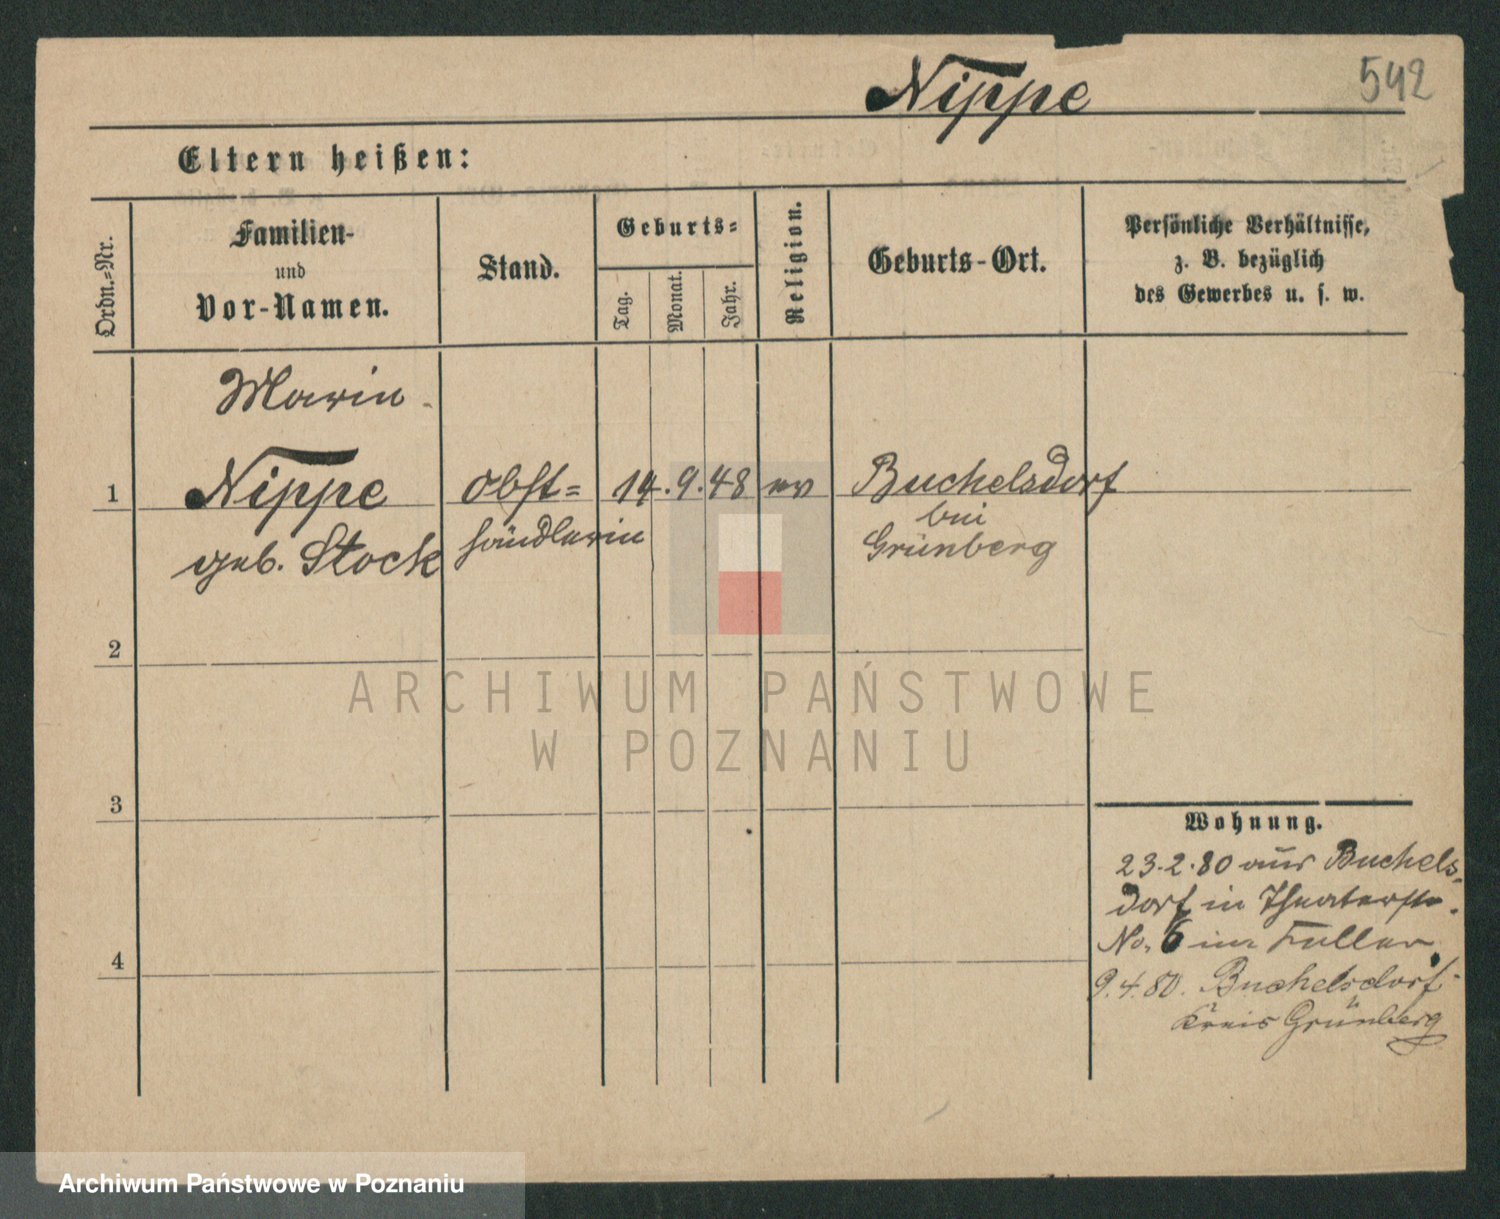 Nippe
542
Eltern heißen:
Ordn.-Nr.
Familien-
und
Vor-Namen.
Stand.
Geburts-
Tag.
Monat.
Jahr.
Religion.
Geburts-Ort.
Persönliche Verhältnisse,
z. B. bezüglich
des Gewerbes u. s. w.
Marie
1
Nippe
geb. Stock
Obst-
händlerin
14.9.48
ev
Buchelsdorf
bei
Grünberg
2
3
4
Wohnung.
23.2.80 aus Buchels-
dorf in Theaterstr.
No. 6 im Keller.
9.4.80. Buchelsdorf
Kreis Grünberg
ARCHIWUM PAŃSTWOWE
W POZNANIU
Archiwum Państwowe w Poznaniu